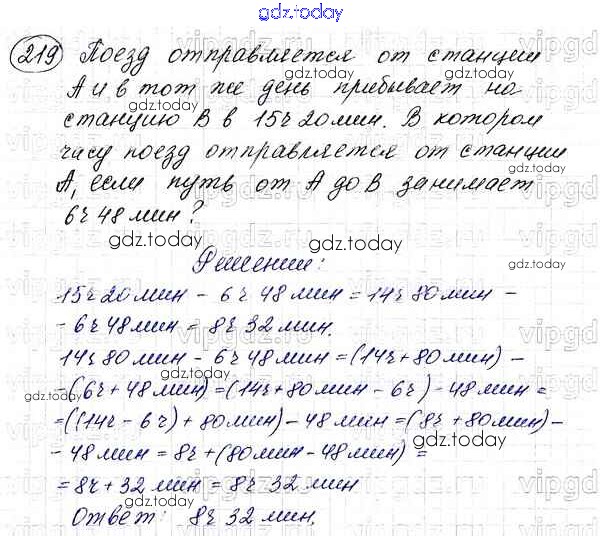 gdz.today
219 Поезд отправляется от станции
А и в тот же день прибывает на
gdz.today gdz.today
станцию В в 15ч 20мин. В котором
часу поезд отправляется от станции
gdz.today
А, если путь от А до В занимает
6ч 48 мин?
gdz.today gdz.today
Решение:
15ч 20мин - 6ч 48 мин = 14ч 80мин -
gdz.today
- 6ч 48мин = 8ч 32 мин.
gdz.today
14ч 80мин - 6ч 48 мин = (14ч + 80мин) -
- (6ч + 48 мин) = (14ч + 80мин - 6ч) - 48 мин =
gdz.today gdz.today
= ((14ч - 6ч) + 80мин) - 48 мин = (8ч + 80мин) -
gdz.today
- 48 мин = 8ч + (80мин - 48 мин) =
gdz.today
= 8ч + 32 мин = 8ч 32 мин
Ответ: 8ч 32 мин.
gdz.today